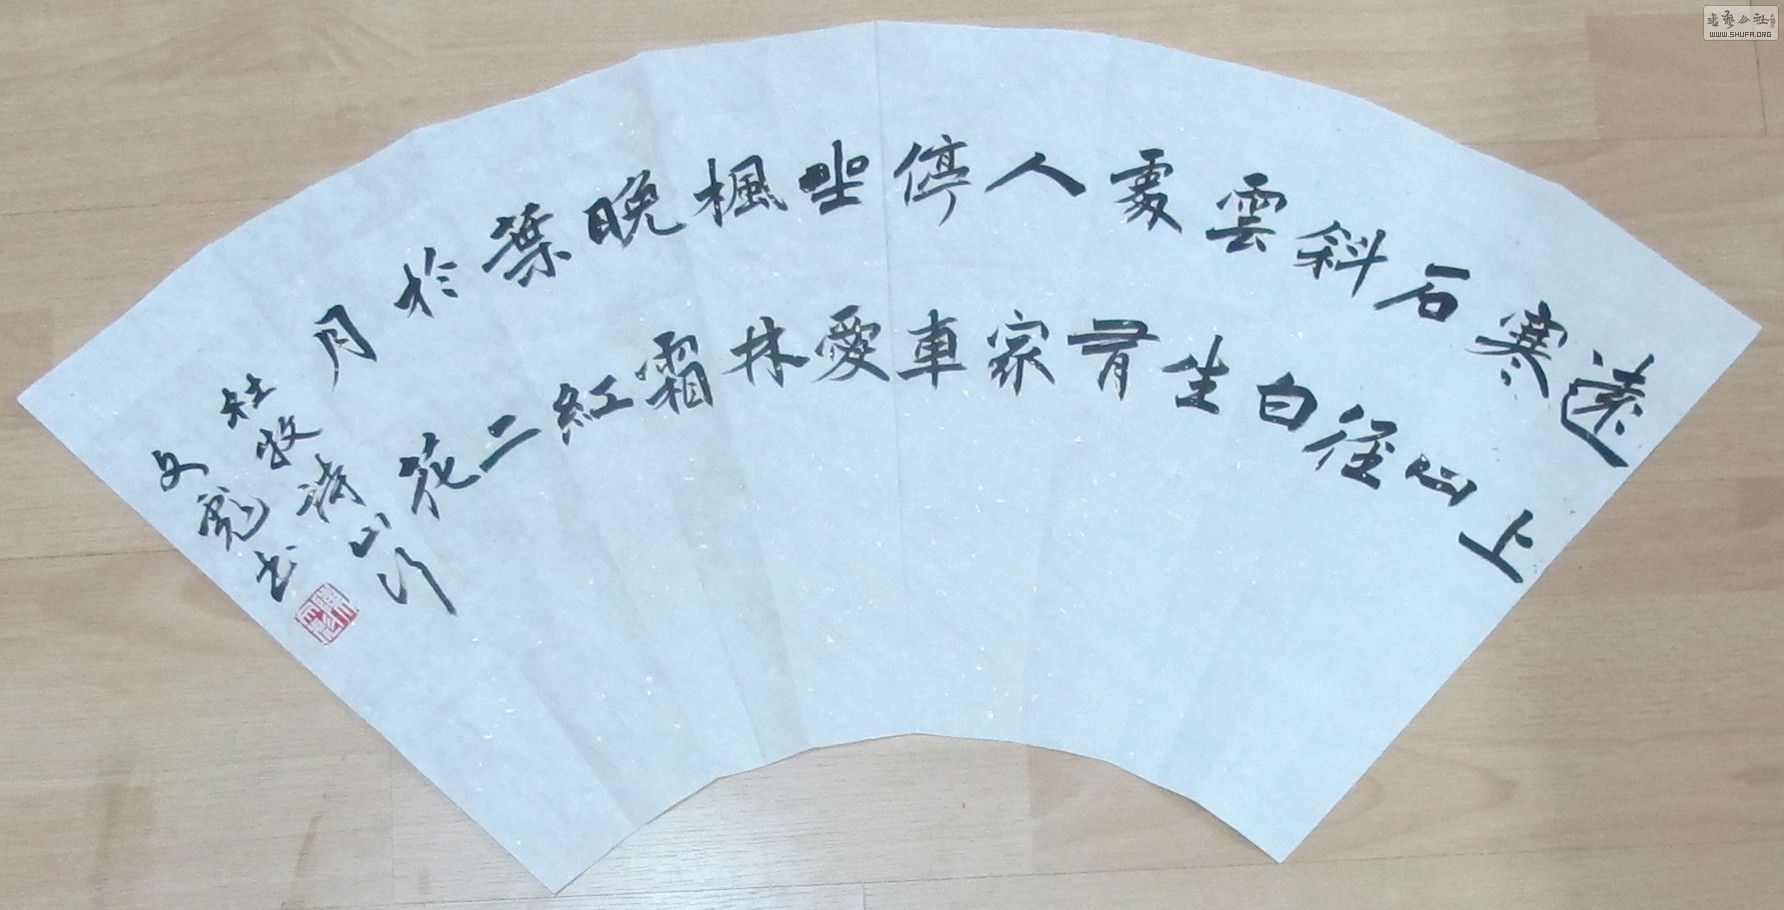 遠上
寒山
石徑
斜白
雲生
處有
人家
停車
坐愛
楓林
晚霜
葉紅
於二
月花
杜牧詩山行
文彪书
书艺公社
WWW.SHUFA.ORG